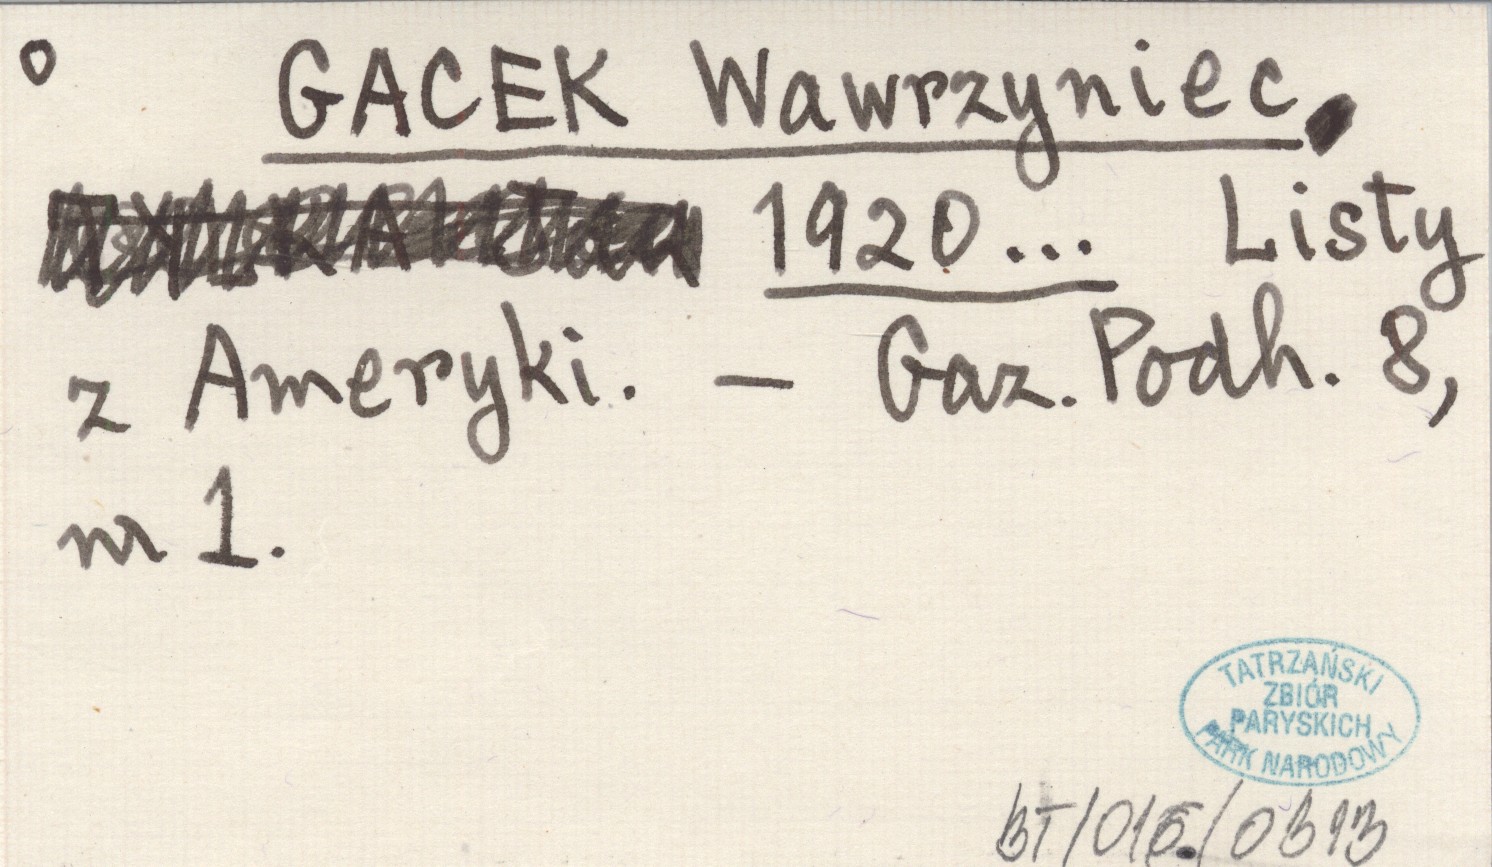 GACEK Wawrzyniec
1920... Listy
z Ameryki. — Gaz. Podh. 8,
nr 1.
TATRZAŃSKI
ZBIÓR
PARYSKICH
PARK NARODOWY